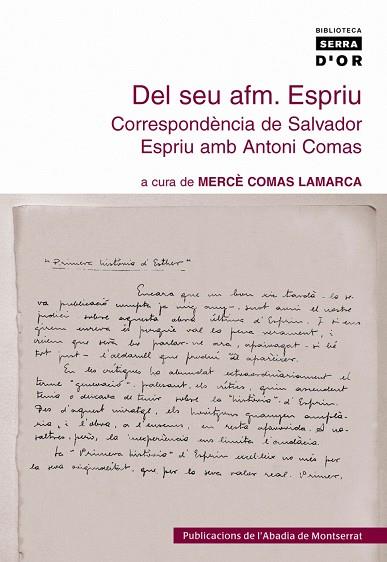 BIBLIOTECA
SERRA
D'OR
Del seu afm. Espriu
Correspondència de Salvador
Espriu amb Antoni Comas
a cura de MERCÈ COMAS LAMARCA
"Primera història d'Esther"
Encara que un bon xic tardà - la se-
va publicació compta ja mig any -, surt avui el nostre
judici sobre aquesta obra última d'Espriu. I si ens
quem encara és perquè val la pena verament, i
creiem que serà bo parlar-ne ara, apaivagat - si bé
tot just - l'aldarull que produí en aparèixer.
En les crítiques ha abundat extraordinàriament el
terme "guenyació". palesant, els crítics, quin ascendent
sobre la "història" d'Esprin.
Des d'aquest miratge, els
ria, i l'obra, a l'ensems, en resta No-
saltres, però, la inexperiència ens limita l'audàcia.
La "Primera història" d'Espriu excel·leix no més per
la seva originalitat, que per la seva valor real. Primer,
Publicacions de l'Abadia de Montserrat